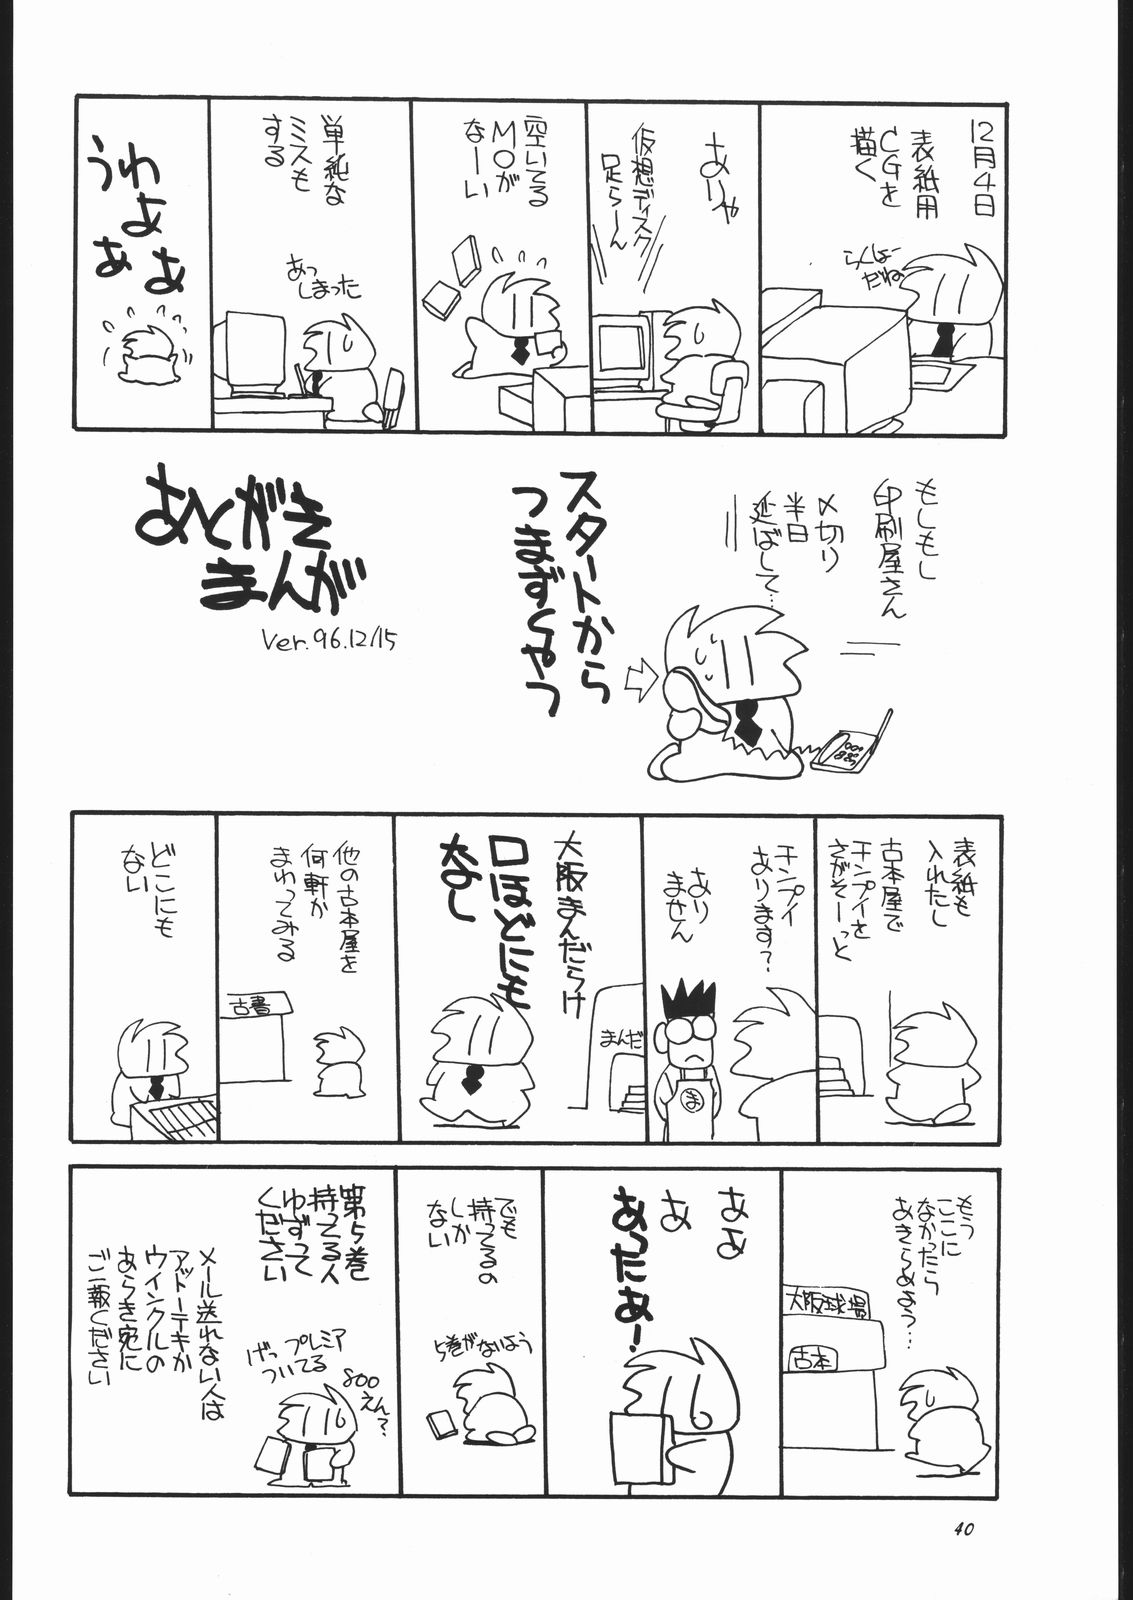 12月4日
表紙用
CGを
描く
らくしょー
だね
ありゃ
仮想ディスク
足らーん
空いてる
MOが
なーい
単純な
ミスも
する
あっ
しまった
うわぁ
よぁ
あとがき
まんが
Ver.96.12/15
もしもし
印刷屋さん
〆切り
半日
延ばして…
スタートから
つまずくやつ
表紙も
入れたし
古本屋で
チンプイを
さがそーっと
チンプイ
あります?
あり
ません
ま
大阪まんだらけ
口ほどにも
なし
まんだ
他の古本屋を
何軒か
まわってみる
古書
どこにも
ない
もう
ここに
なかったら
あきらめよう…
大阪球場
古本
あぁ
あ
あったぁ!
でも
持ってるの
しか
ない
5巻がないよう
第5巻
持ってる人
ゆずって
ください
800
えん?
プレミア
ついてる
げっ
メール送れない人は
アットーテキか
ウインクルの
あらき宛に
ご一報ください
40